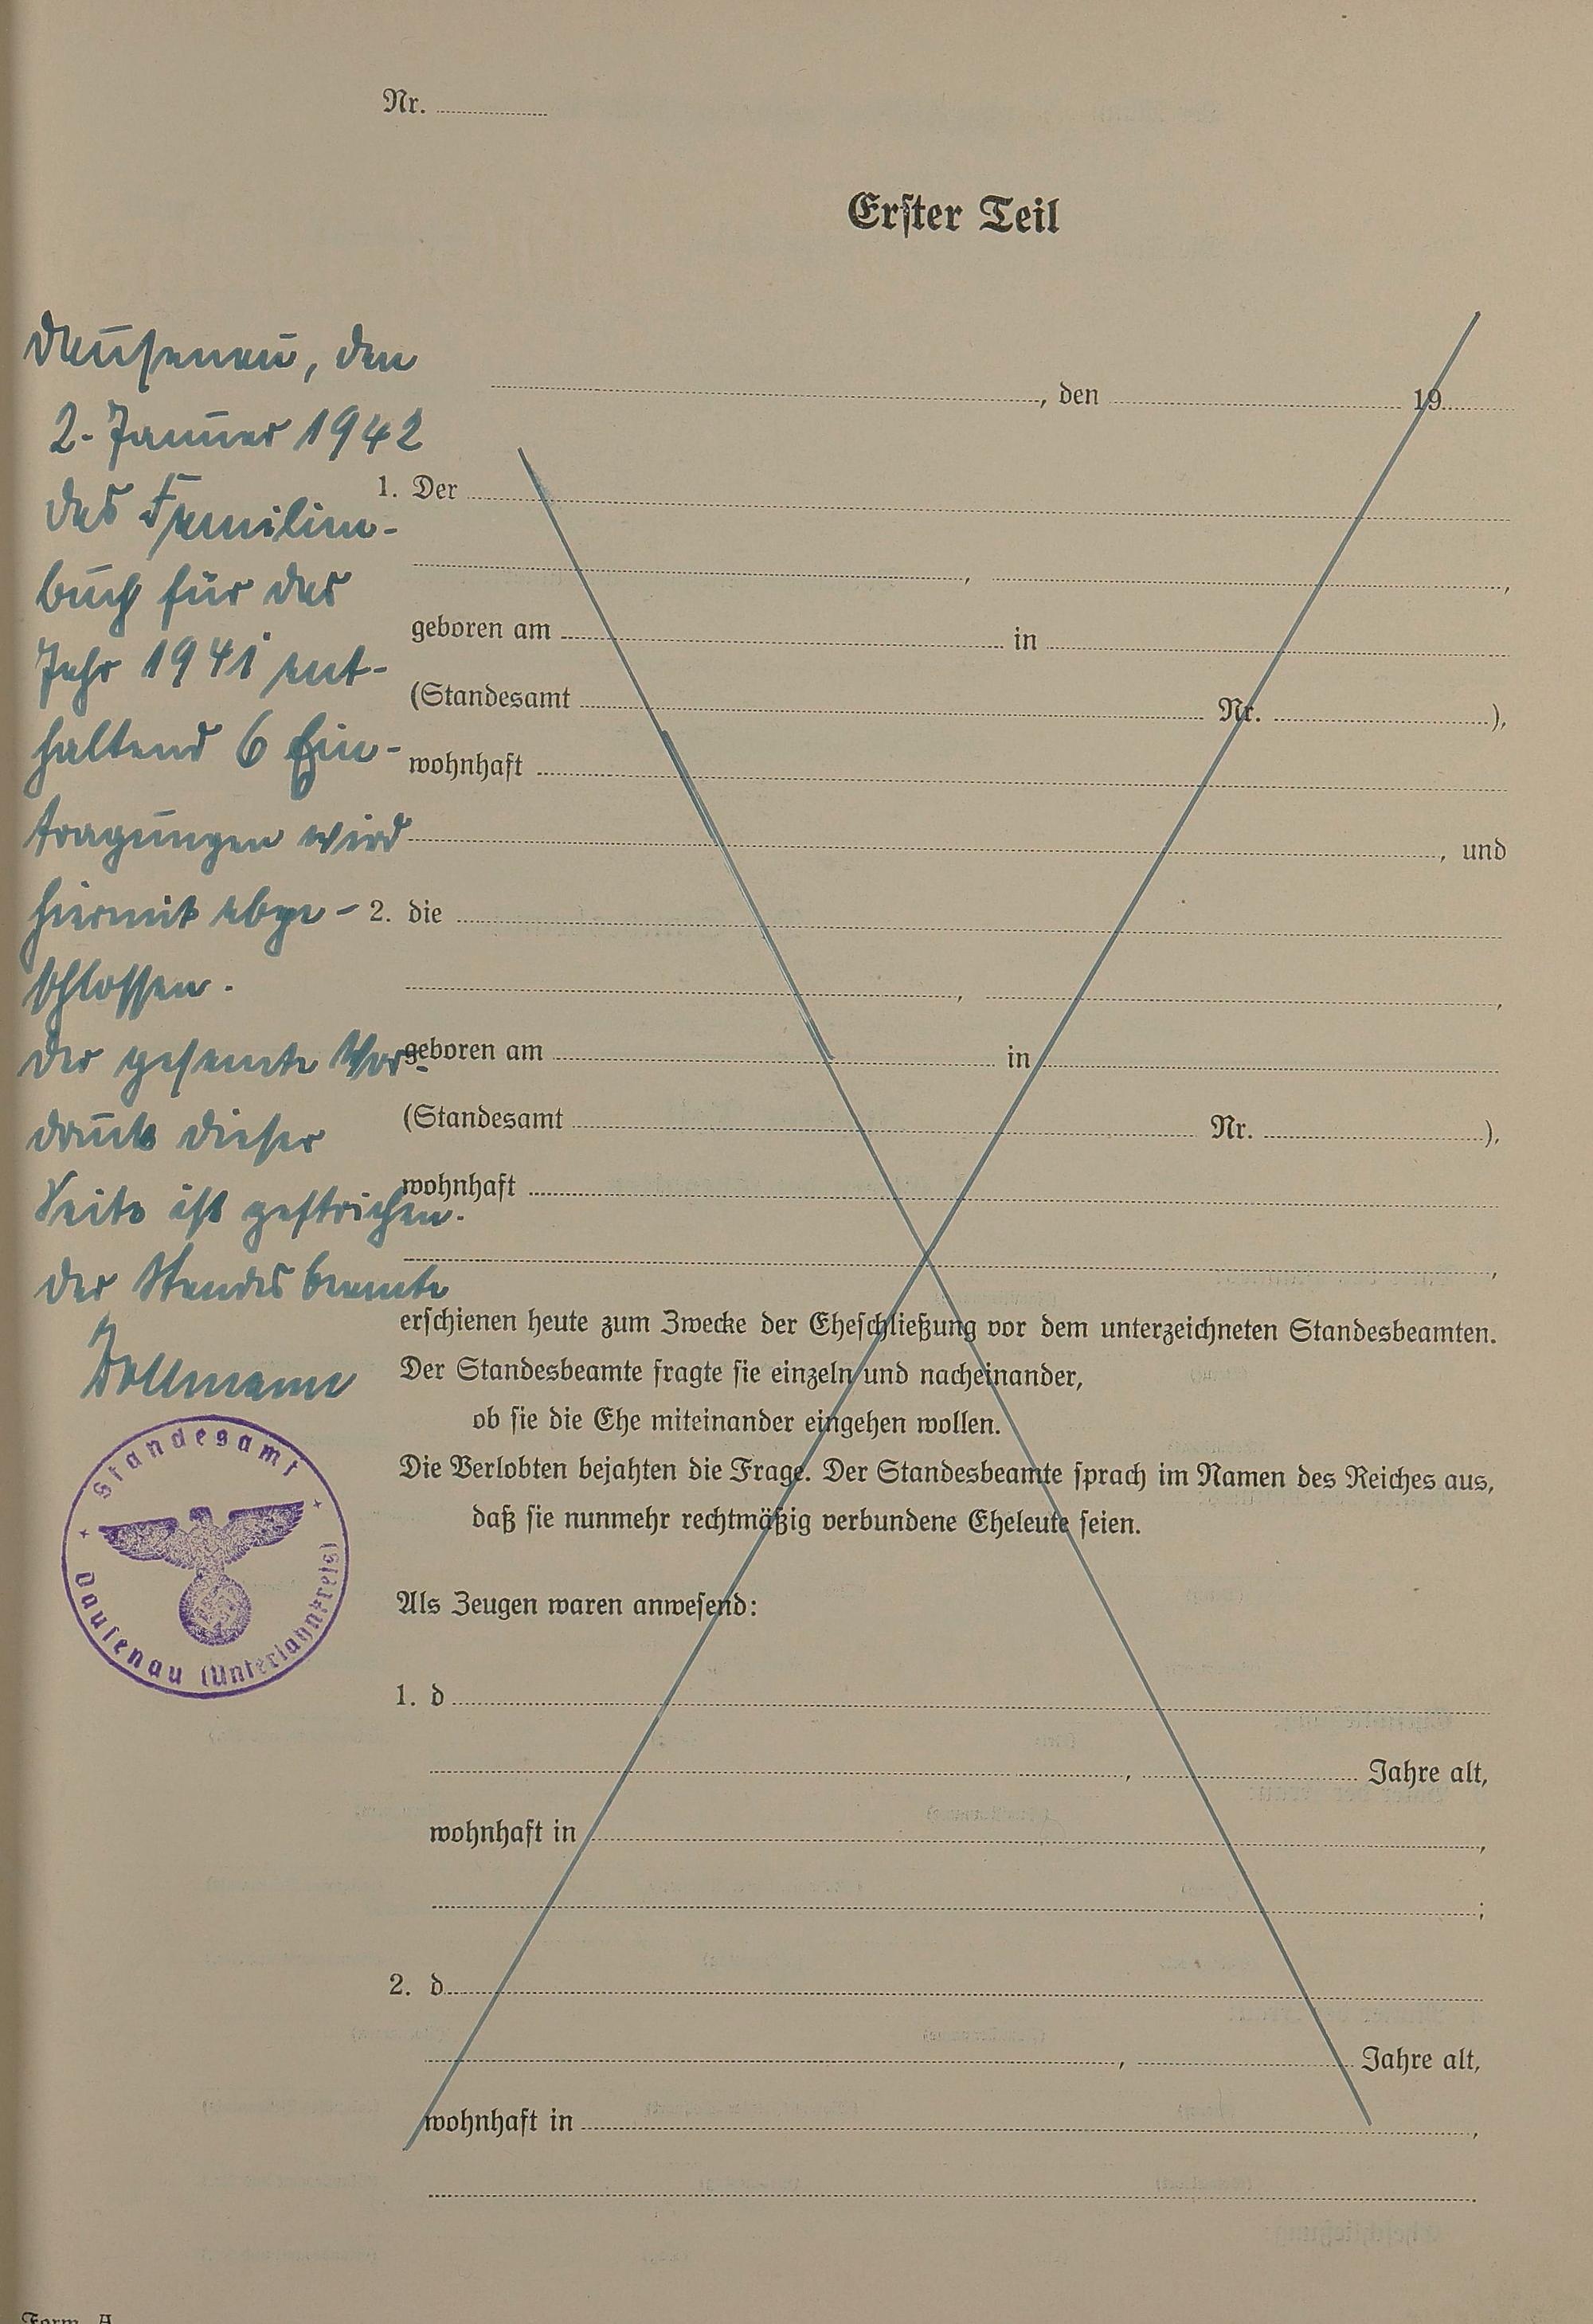 Nr.
Erster Teil
Dausenau, den
2. Januar 1942
das Familien-
buch für das
Jahr 1941 ent-
haltend 6 Ein-
tragungen wird
hiermit abge-
schlossen.
Der gesamte Vor-
druck dieser
Seite ist gestrichen.
Der Standesbeamte
Standesamt
Dausenau (Unterlahnkreis)
, den 19
1. Der
, ,
geboren am in
(Standesamt Nr. ),
wohnhaft
, und
2. die
, ,
geboren am in
(Standesamt Nr. ),
wohnhaft
,
erschienen heute zum Zwecke der Eheschließung vor dem unterzeichneten Standesbeamten.
Der Standesbeamte fragte sie einzeln und nacheinander,
ob sie die Ehe miteinander eingehen wollen.
Die Verlobten bejahten die Frage. Der Standesbeamte sprach im Namen des Reiches aus,
daß sie nunmehr rechtmäßig verbundene Eheleute seien.
Als Zeugen waren anwesend:
1. d
, Jahre alt,
wohnhaft in ,
;
2. d
, Jahre alt,
wohnhaft in ,
.
Form. A